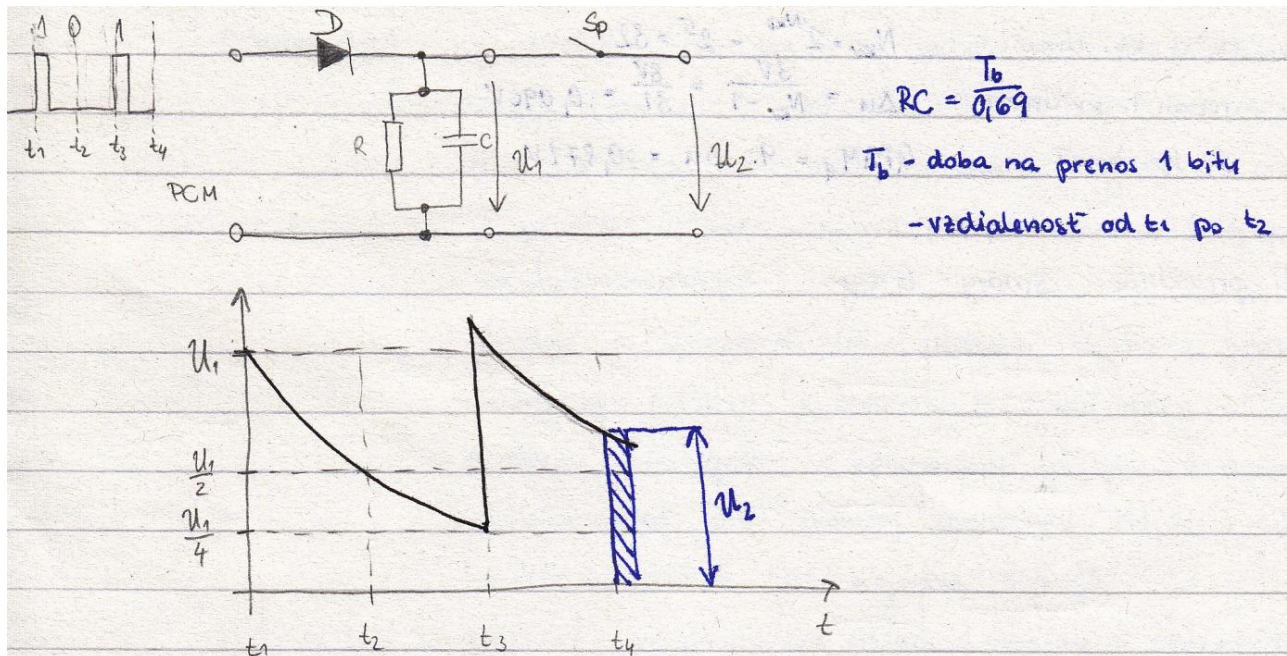 1 0 1
t1 t2 t3 t4
PCM
D
Sp
R
C
U1
U2
RC = Tb/0,69
Tb - doba na prenos 1 bitu
- vzdialenosť od t1 po t2
U1
U1/2
U1/4
U2
t1 t2 t3 t4 t